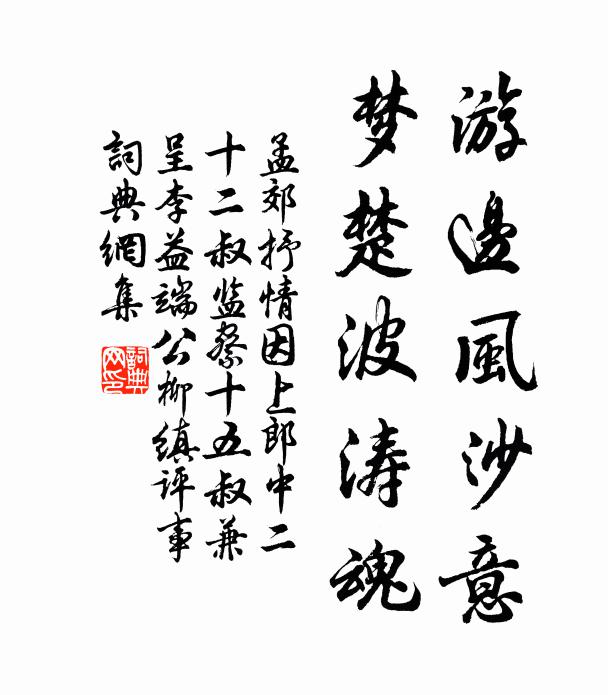 游邊風沙意
梦楚波涛魂
孟郊抒情因上郎中二
十二叔监察十五叔兼
呈李益端公柳缜评事
詞典網集
詞典网印